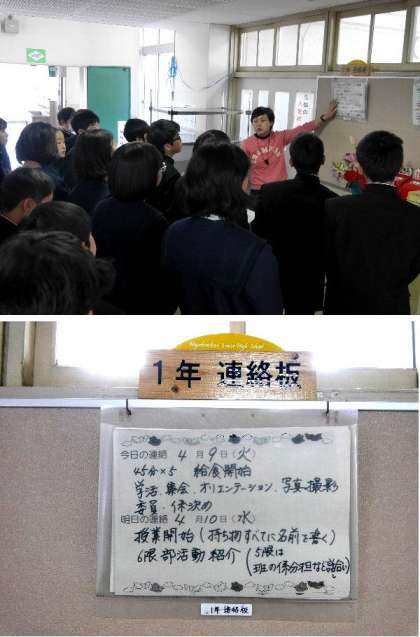 1年 連絡板
今日の連絡 4月9日(火)
45分×5 給食開始
学活.集会.オリエンテーション.写真撮影
委員.係決め
明日の連絡 4月10日(水)
授業開始(持ち物すべてに名前を書く)
6限部活動紹介(5限は
班の係分担など
1年 連絡板